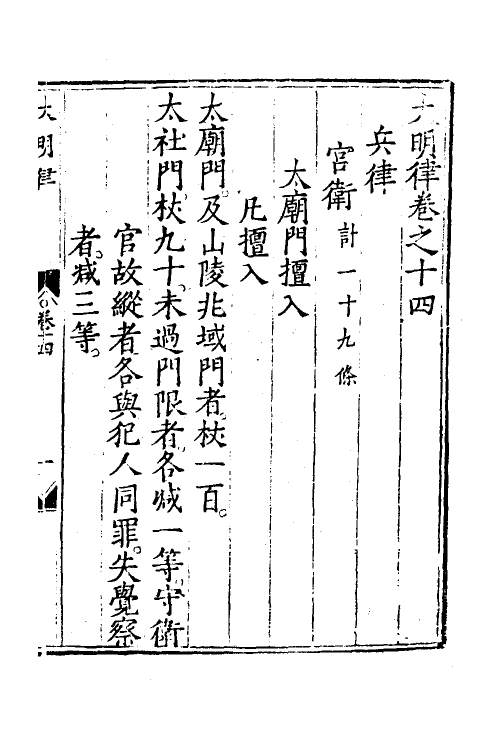 大明律卷之十四
兵律
宮衛計一十九條
太廟門擅入
凡擅入
太廟門。及山陵兆域門者。杖一百。
太社門。杖九十。未過門限者。各減一等。守衛
官故縱者。各與犯人同罪。失覺察
者。减三等。
大明律
卷十四
一